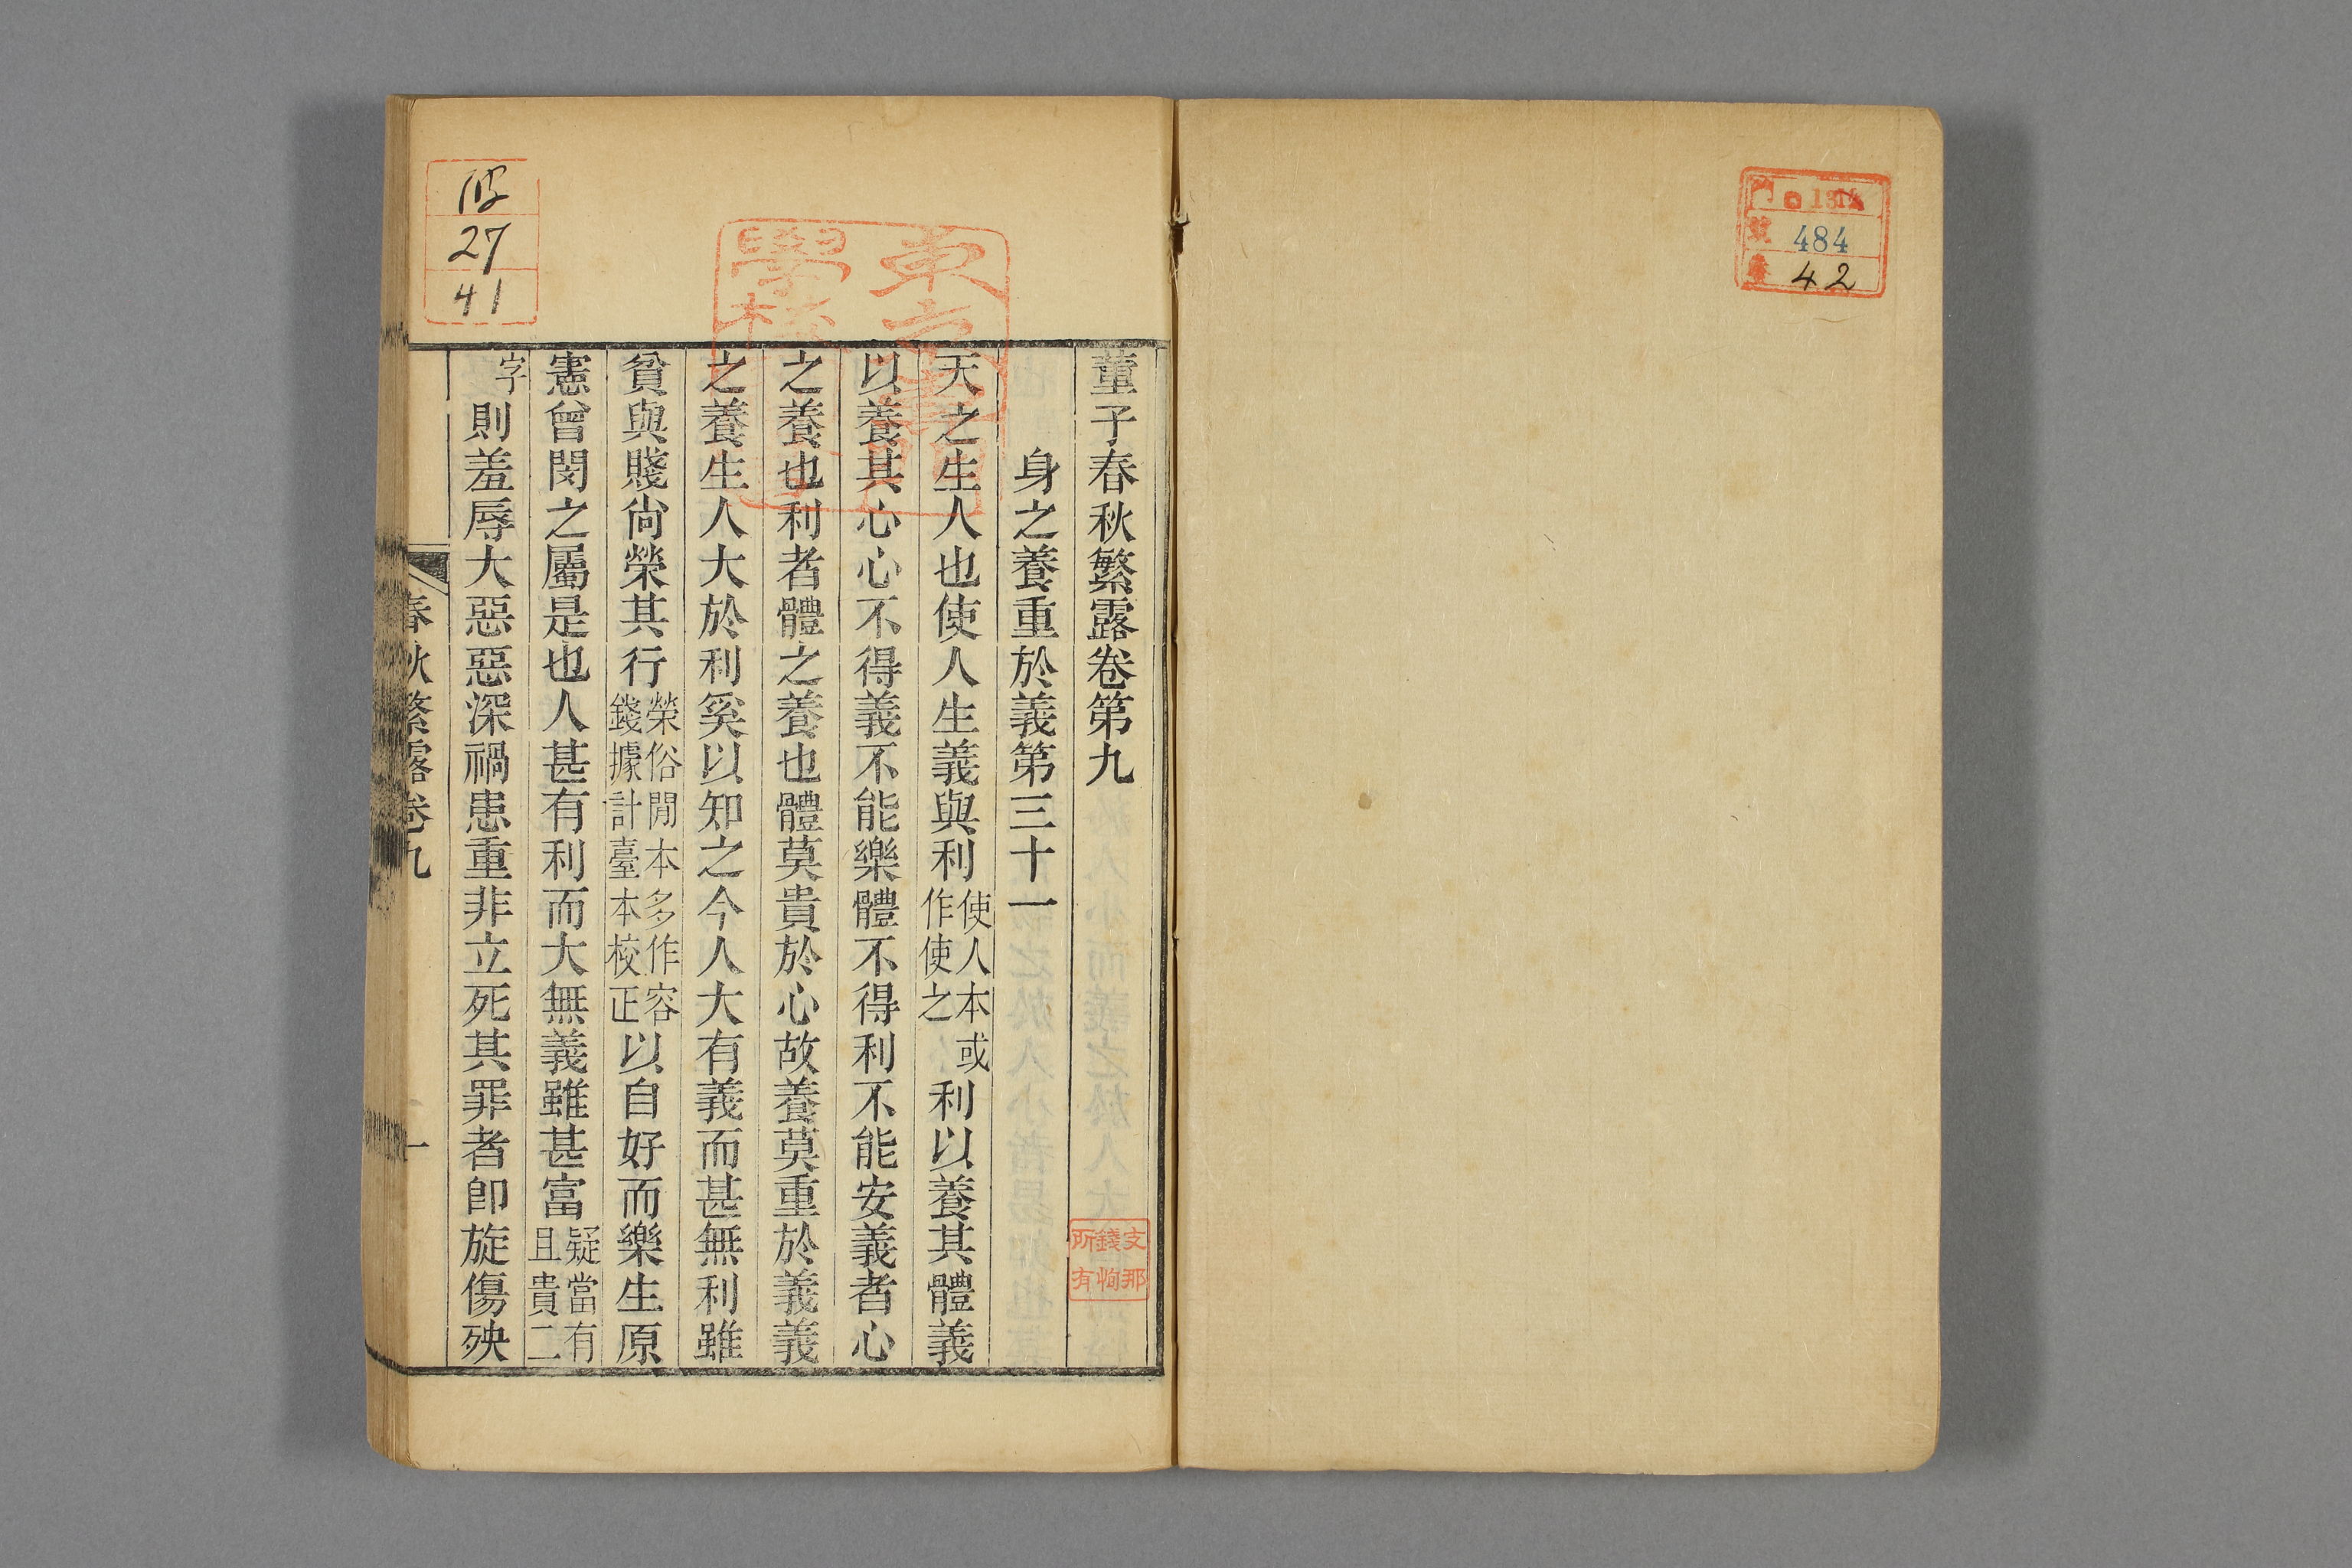 484
42
董子春秋繁露卷第九
身之養重於義第三十一
天之生人也使人生義與利使人本或作使之利以養其體義
以養其心心不得義不能樂體不得利不能安義者心
之養也利者體之養也體莫貴於心故養莫重於義義
之養生人大於利奚以知之今人大有義而甚無利雖
貧與賤尚榮其行榮俗閒本多作容錢據計臺本校正以自好而樂生原
憲曾閔之屬是也人甚有利而大無義雖甚富疑當有且貴二
字則羞辱大惡惡深禍患重非立死其罪者卽旋傷殃
春秋繁露卷九
一
支那
錢恂
所有
27
41